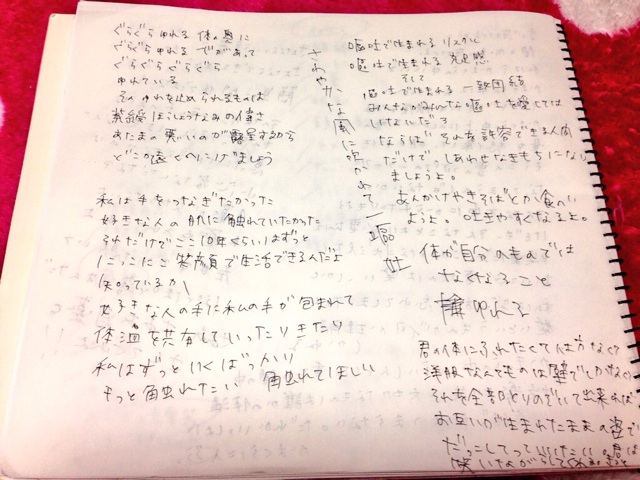 ぐらぐら ゆれる 体の奥に
ぐらぐら ゆれる でがあって
ぐらぐらぐらぐら
ゆれている
そのゆれを止められるものは
紫綬ほうしょうなみの偉さ
あたまの悪いのが露呈するから
どこか遠くへにげましょう
私は手をつなぎたかった
好きな人の肌に触れていたかった
それだけでここ10年くらいはずっと
にこにこ笑顔で生活できるんだよ
知っているか
好きな人の手に私の手が包まれて
体温を共有していったりきたり
私はずっといくばっかり
もっと触れたい 触れてほしい
さわやかな風に吹かれて 嘔吐
嘔吐で生まれる リスカレ
嘔吐で生まれる 充足感
そして
嘔吐で生まれる 一致団結
みんながみんな嘔吐を愛しては
いけないだろ
ならば それを許容できる人間
だけで、しあわせなきもちになり
ましょうよ。
あんかけやきそばとか食べ
ようよ。吐きやすくなるよ。
体が自分のものでは
なくなること
揺れる
君の体にふれたくて仕方なくて
洋服なんてものは壁でしかなく
それを全部とりのぞいて出来れば
お互いが生まれたままの姿で
だっこしてっていいたい。君は
笑いながらしてくれる